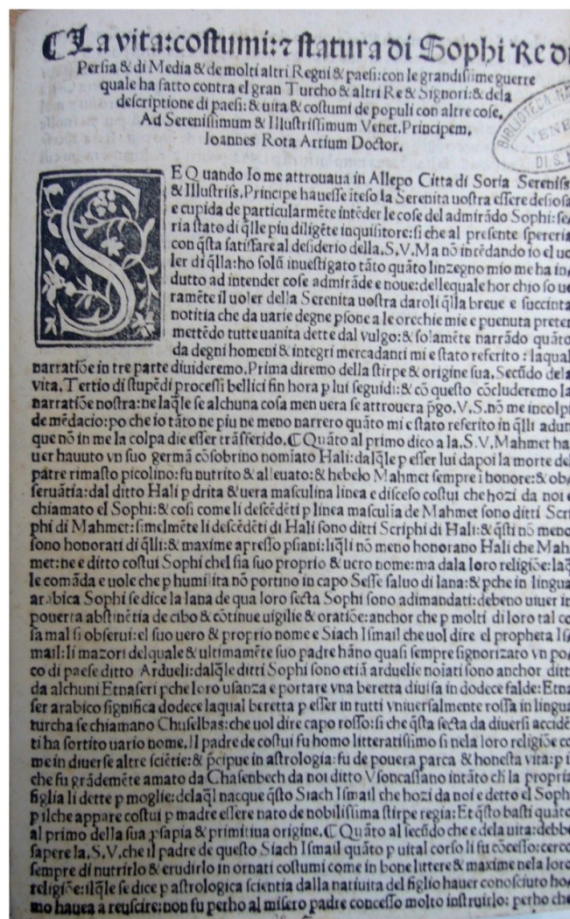 ❡La vita:costumi:⁊ statura di Sophi Re di
Persia & di Media & de molti altri Regni & paesi:con le grandissime guerre
quale ha fatto contra el gran Turcho & altri Re & Signori:& dela
descriptione di paesi:& uita & costumi de populi con altre cose.
Ad Serenissimum & Illustrissimum Venet.Principem.
Joannes Rota Artium Doctor.
BIBLIOTECA NA
VENE
DI S. M
SE Quando Io me attrouaua in Allepo Citta di Soria Sereniss
& Illustriss. Principe hauesse iteso la Serenita uostra essere desiosa
e cupida de particularmẽte intẽder le cose del admirãdo Sophi:se
ria stato di q̃lle piu diligẽte inquisitore:si che al presente spereria
con q̃sta satisfare al desiderio della.S.V.Ma nõ intẽdando io el uo
ler di q̃lla:ho solũ inuestigato tãto quãto linzegno mio me ha in
dutto ad intender cose admirãde e noue:dellequale hor chio so ue
ramẽte il uoler della Serenita uostra daroli q̃lla breue e succinta
notitia che da uarie degne p̃sone a le orechie mie e puenuta preter
mettẽdo tutte uanita dette dal vulgo:& solamẽte narrãdo quãto
da degni homeni & integri mercadanti mi e stato referito : laqual
narratiõe in tre parte diuideremo.Prima diremo della stirpe & origine sua.Secũdo dela
vita.Tertio di stupẽdi processi bellici fin hora p lui seguidi:& cõ questo cõcluderemo la
narratiõe nostra:ne laq̃le se alchuna cosa men uera se attrouera p̃go.V.S.nõ me incolpi
de mẽdacio:po che io tãto ne piu ne meno narrero quãto mi e stato referito in q̃lli adun
que nõ in me la colpa die esser trãsferido.❡Quãto al primo dico a la.S.V.Mahmet ha
uer hauuto vn suo germã cõsobrino nomiato Hali:dalq̃le p esser lui dapoi la morte del
patre rimasto picolino:fu nutrito & alleuato:& hebelo Mahmet sempre i honore:& ob/
seruãtia:dal ditto Hali p drita & uera masculina linea e disceso costui che hozi da noi e
chiamato el Sophi:& cosi come li descẽdẽti p linea masculia de Mahmet sono ditti Scri
phi di Mahmet:simelmẽte li descẽdẽti di Hali sono ditti Scriphi di Hali:& q̃sti nõ meno
sono honorati di q̃lli:& maxime apresso psiani:liq̃li nõ meno honorano Hali che Mah
met:ne e ditto costui Sophi chel sia suo proprio & uero nome:ma dala loro religiõe:laq̃
le comãda e uole che p humilita nõ portino in capo Sesse saluo di lana:& pche in lingua
arabica Sophi se dice la lana de qua loro secta Sophi sono adimandati:debeno uiuer in
pouerta abstinẽtia de cibo & cõtinue uigilie & oratiõe:anchor che p molti di loro tal co
sa mal si obserui:el suo uero & proprio nome e Siach Ismail che uol dire el propheta Is
mail:li mazori del quale & ultimamẽte suo padre hãno quasi sempre signorizato vn po/
co di paese ditto Ardueli:dalq̃le ditti Sophi sono etiã arduelie noiati sono anchor ditti
da alchuni Etnaseri pche loro usanza e portare vna beretta diuisa in dodece falde:Etna
ser arabico significa dodece laqual beretta p esser in tutti vniuersalmente rossa in lingua
turcha se chiamano Chuselbas:che uol dire capo rosso:si che q̃sta secta da diuersi accidẽ
ti ha sortito uario nome.Il padre de costui fu homo litteratissimo si nela loro religiõe co
me in diuerse altre sciẽtie:& p̃cipue in astrologia:fu de pouera parca & honesta vita:p il
che fu grãdemẽte amato da Chasenbech da noi ditto Vsoncassano intãto ch̃ la propria
figlia li dette p moglie:delaq̃l nacque q̃sto Siach Ismail che hozi da noi e detto el Sophi
p ilche appare costui p madre essere nato de nobilissima stirpe regia:Et q̃sto basti quãto
al primo della sua p̃sapia & primitiua origine.❡Quãto al secũdo che e dela uita:debbe
sapere la.S.V.che il padre de questo Siach Ismail quãto p uital corso li fu cõcesso:cerco
sempre di nutrirlo & erudirlo in ornati costumi come in bone littere & maxime nela loro
religiõe:ilq̃le se dice p astrologica scientia dalla natiuita del figlio hauer conosciuto ho/
mo hauea a reuscire:non fu perho al misero padre concesso molto instruirlo:perho che